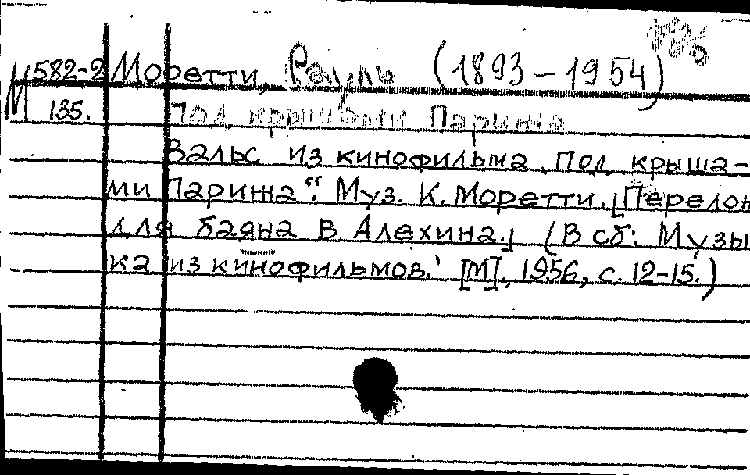 М 582-2 Моретти, Рауль (1893-1954)
135. Под крышами Парижа
Вальс из кинофильма „Под крыша-
ми Парижа". Муз. К. Моретти. [Перелож
для баяна В Алехина.] (В сб: Музы
ка из кинофильмов.' [М], 1956, с. 12-15.)